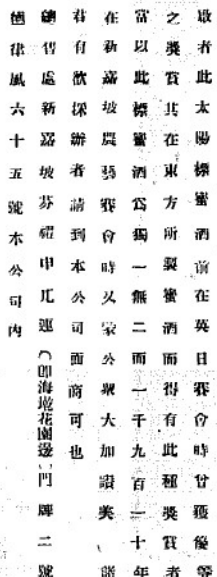 敬者此太陽標蜜酒前在英日賽會時曾獲優等
之獎賞其在東方所製蜜酒而得有此種獎賞者
當以此標蜜酒爲獨一無二而一千九百一十年
在新嘉坡農藝賽會時又蒙公衆大加讚美
君有欲採辦者請到本公司面商可也
總售處新嘉坡芬禮申兀運(即海墘花園邊)門牌二號
律風六十五號本公司內